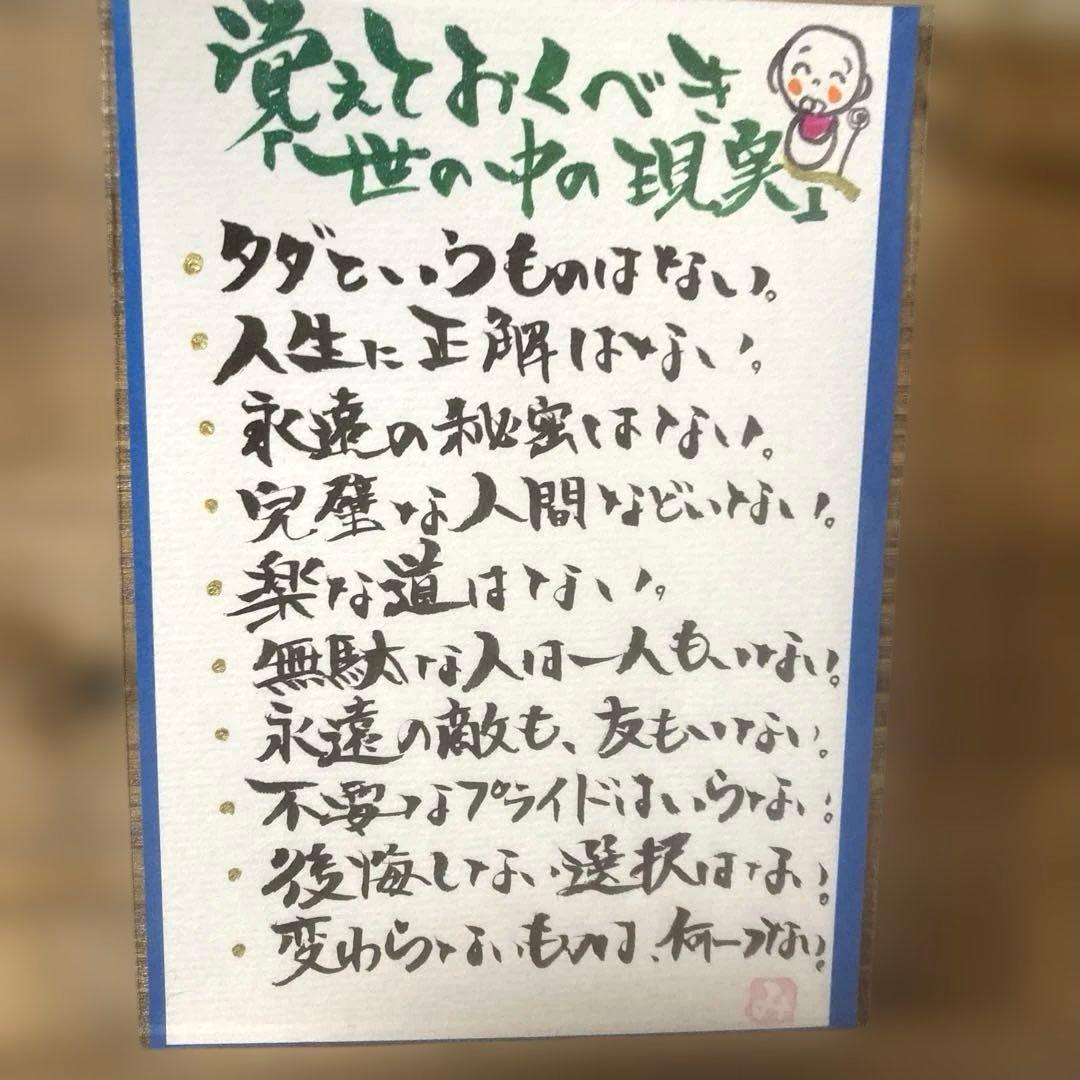 覚えておくべき
世の中の現実
・タダというものはない。
・人生に正解はない。
・永遠の秘密はない。
・完璧な人間などいない。
・楽な道はない。
・無駄な人は一人もいない。
・永遠の敵も、友もいない。
・不要なプライドはいらない。
・後悔しない選択はない。
・変わらないものは、何一つない。
み